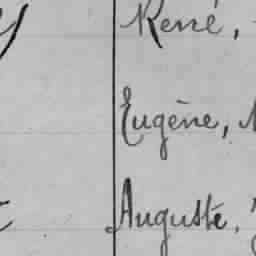 René,
Eugène,
Auguste,